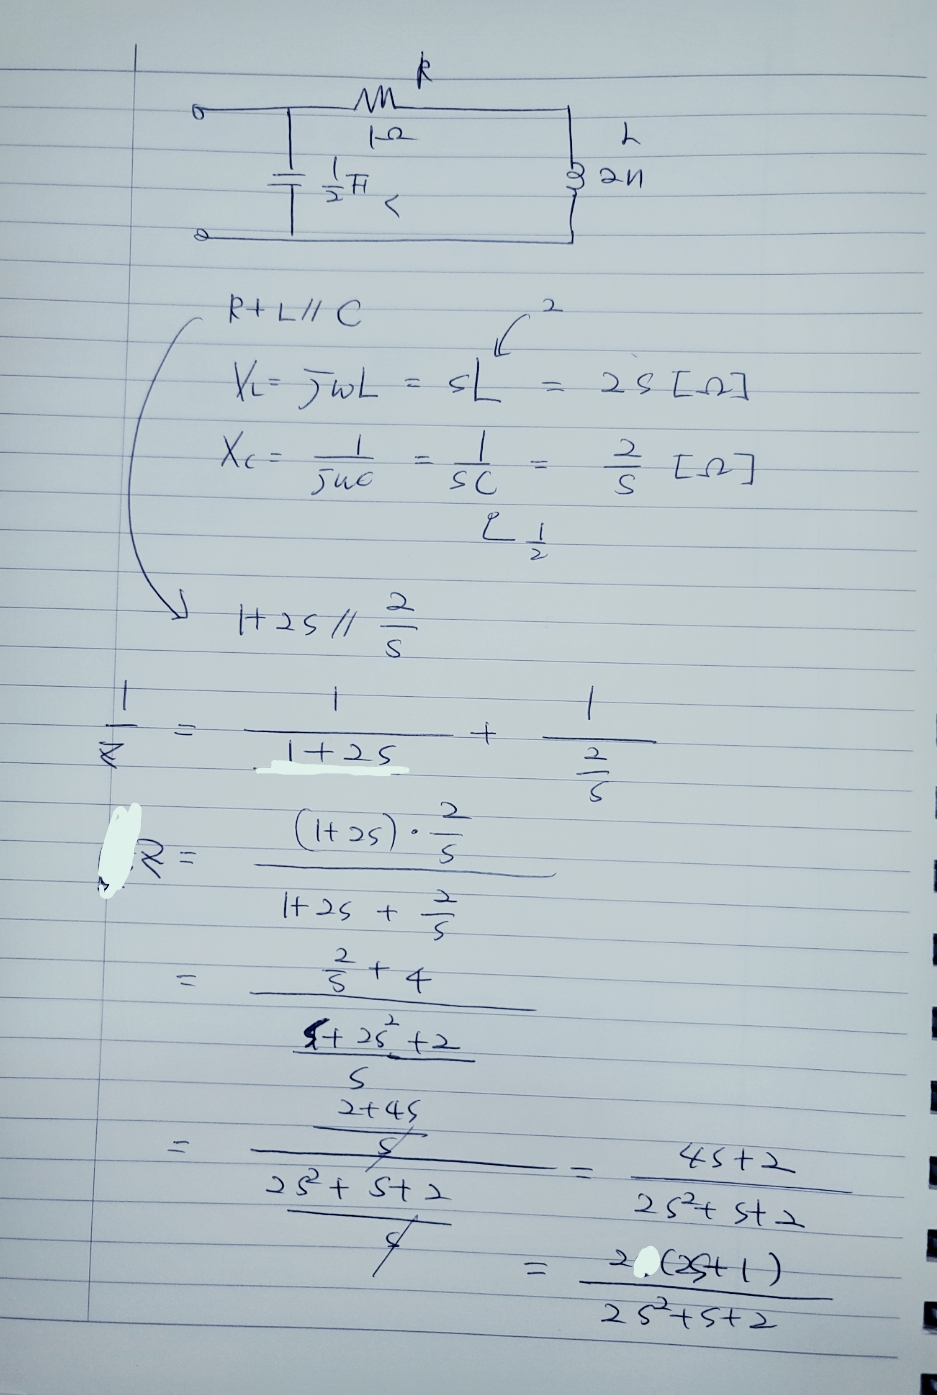 R
1Ω
L
1/2 F
C
2H
R+L//C
2
X_L = jωL = sL = 2s [Ω]
X_C = 1/jωC = 1/sC = 2/s [Ω]
1/2
1+2s // 2/s
1/Z = 1/(1+2s) + 1/(2/s)
Z = ((1+2s)·2/s)/(1+2s+2/s)
= (2/s+4)/((s+2s²+2)/s)
= ((2+4s)/s)/((2s²+s+2)/s) = (4s+2)/(2s²+s+2)
= 2(2s+1)/(2s²+s+2)